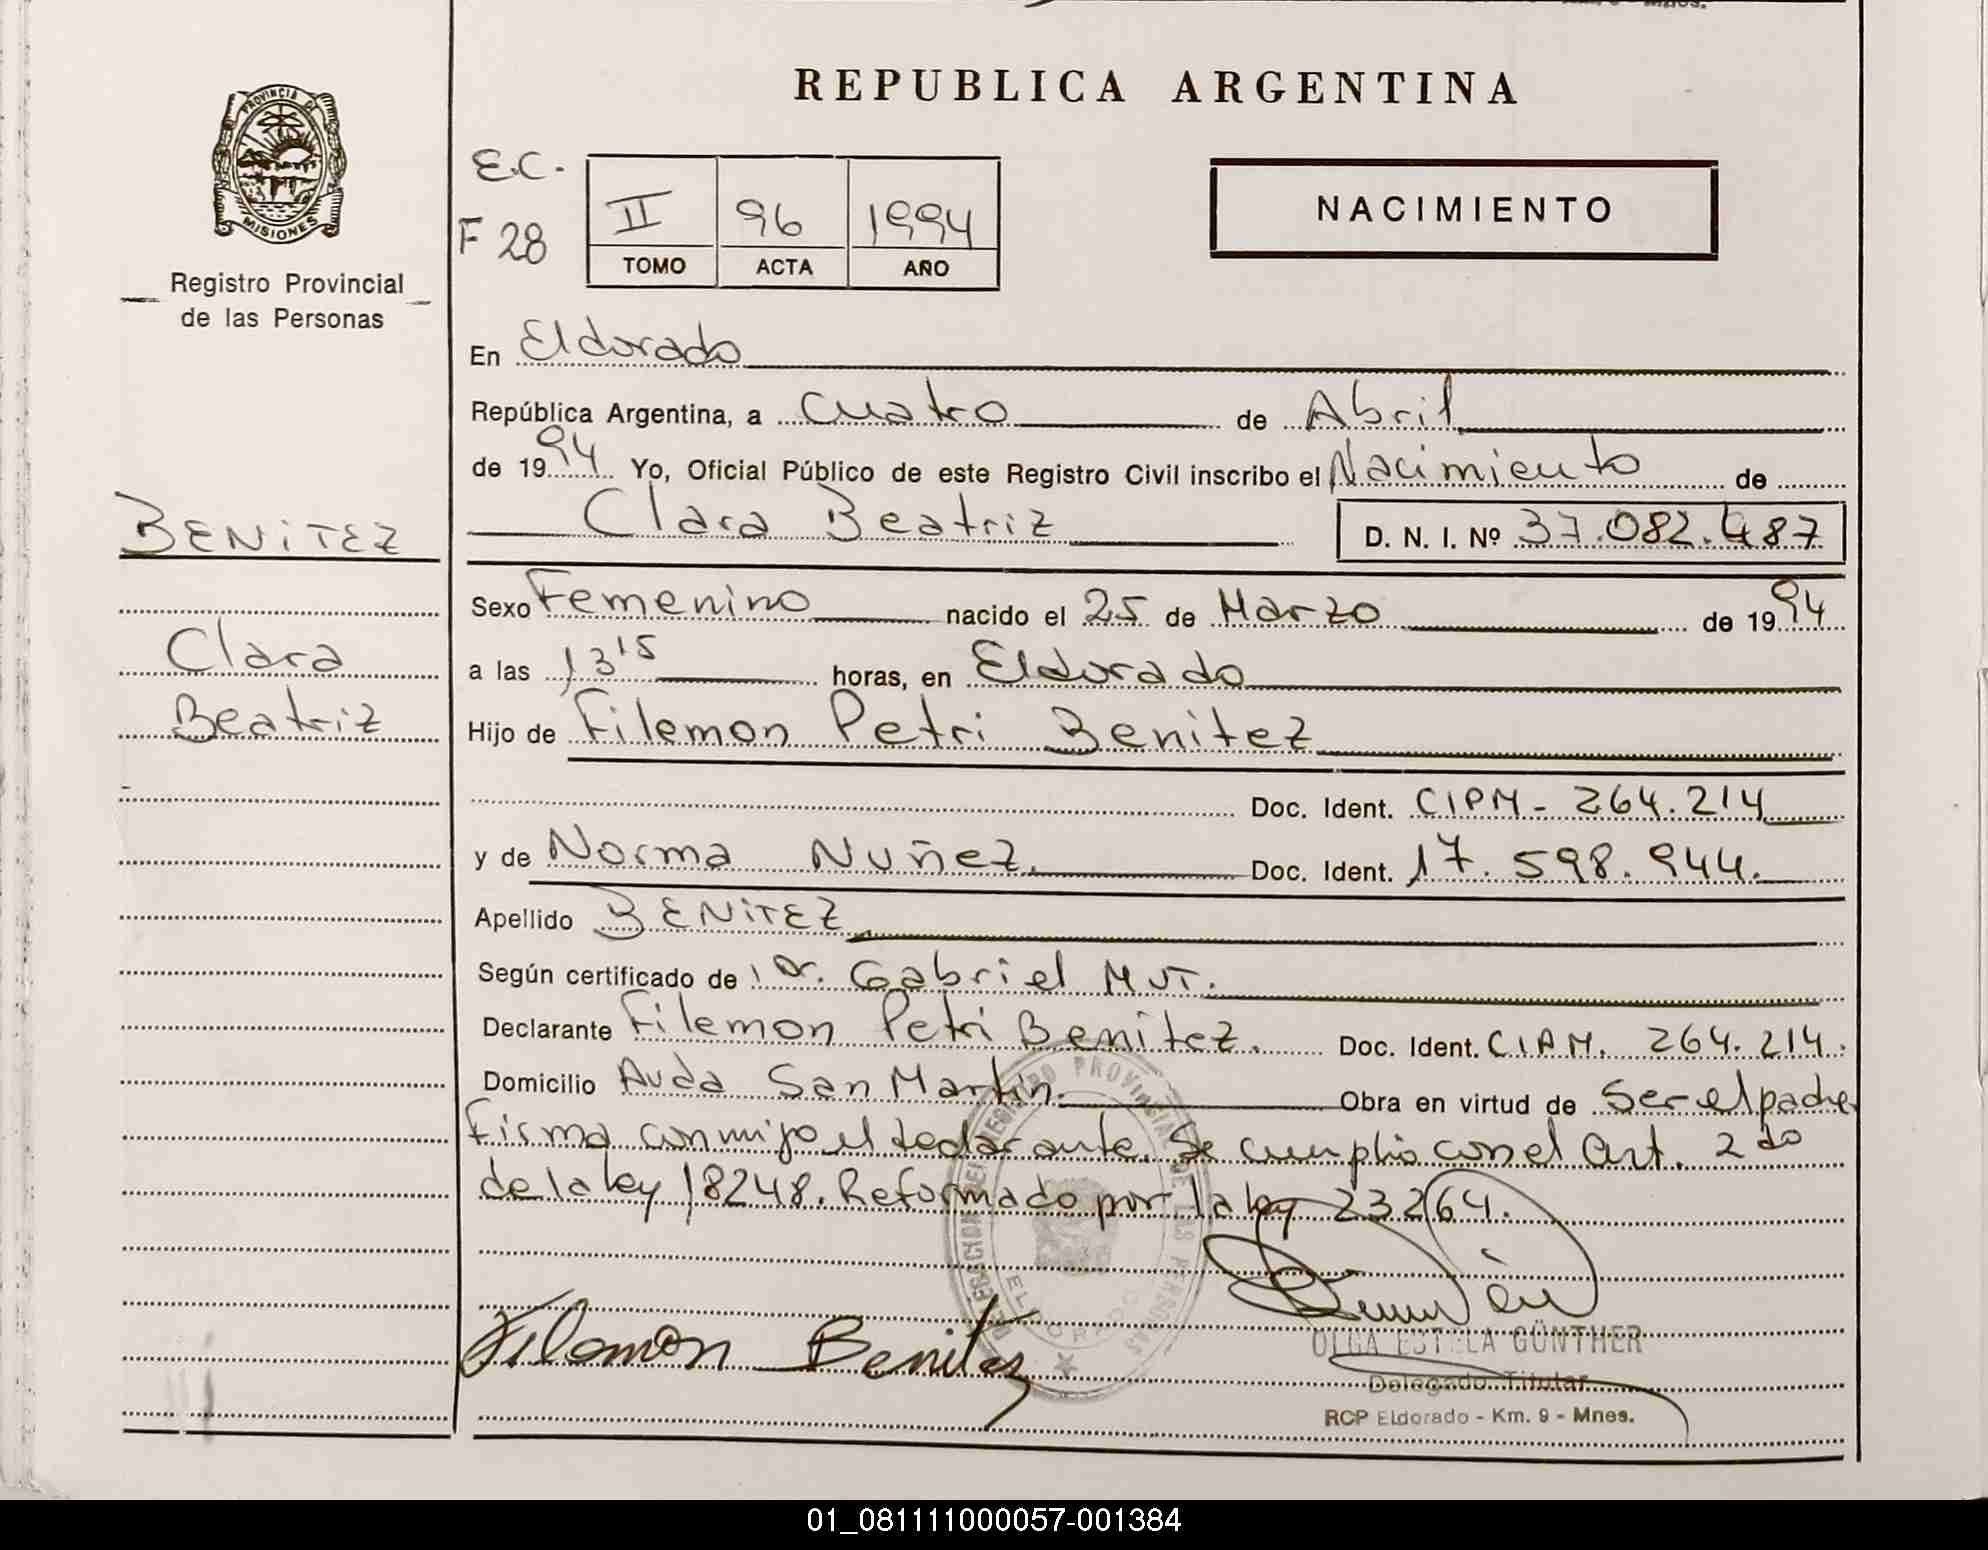 REPUBLICA ARGENTINA
PROVINCIA DE
MISIONES
Registro Provincial
de las Personas
E.C.
F 28
II 96 1994
TOMO ACTA AÑO
NACIMIENTO
En Eldorado
República Argentina, a Cuatro de Abril
de 1994 Yo, Oficial Público de este Registro Civil inscribo el Nacimiento de
Clara Beatriz D. N. I. Nº 37.082.487
BENITEZ
Clara
Beatriz
Sexo Femenino nacido el 25 de Marzo de 1994
a las 13 15 horas, en Eldorado
Hijo de Filemon Petri Benitez
Doc. Ident. CIPM- 264.214
y de Norma Nuñez. Doc. Ident. 17.598.944.
Apellido BENITEZ
Según certificado de Dr. Gabriel MUT.
Declarante Filemon Petri Benitez. Doc. Ident. CIPM. 264.214.
Domicilio Avda San Martin. Obra en virtud de Ser el padre
Firma conmigo el declarante. Se cumplio con el Art. 2do
de la ley 18248. Reformado por la ley 23264.
DELEGACION DEL REGISTRO PROVINCIAL DE LAS PERSONAS
ELDORADO
Filemon Benitez
OLGA ESTELA GÜNTHER
Delegado Titular
RCP Eldorado - Km. 9 - Mnes.
01_081111000057-001384